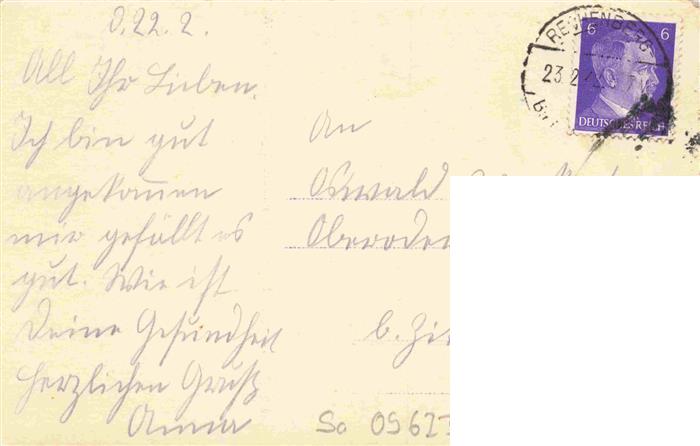 d. 22. 2.
All Ihr Lieben.
Ich bin gut
angekommen
mir gefällt es
gut. Wie ist
Deine Gesundheit
herzlichen Gruß
Anna
An
Oswald
Oberoder
b. Zit
So 0562
REICHENBERG
23.2.
6 6
DEUTSCHES REICH